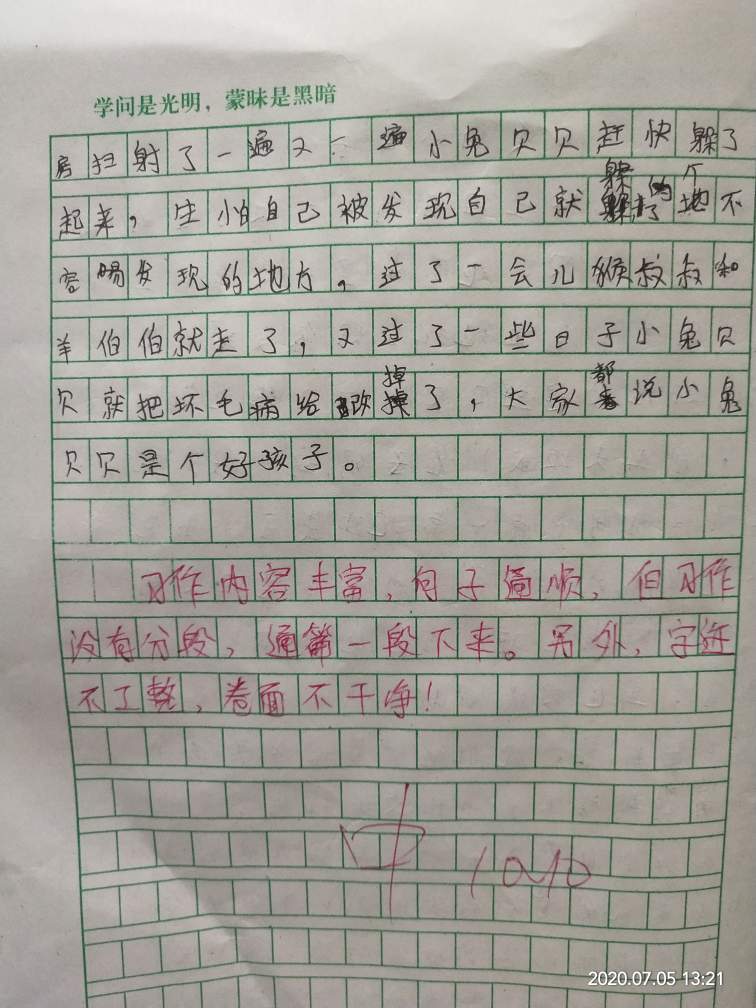 学问是光明，蒙昧是黑暗
房扫射了一遍又一遍小兔贝贝赶快躲了
起来，生怕自己被发现自己就躲的个地不
容易发现的地方，过了一会儿猴叔叔和
羊伯伯就走了，又过了一些日子小兔贝
贝就把坏毛病给改掉了，大家都说小兔
贝贝是个好孩子。
习作内容丰富，句子通顺，但习作
没有分段，通篇一段下来。另外，字迹
不工整，卷面不干净！
中
2020.07.05 13:21